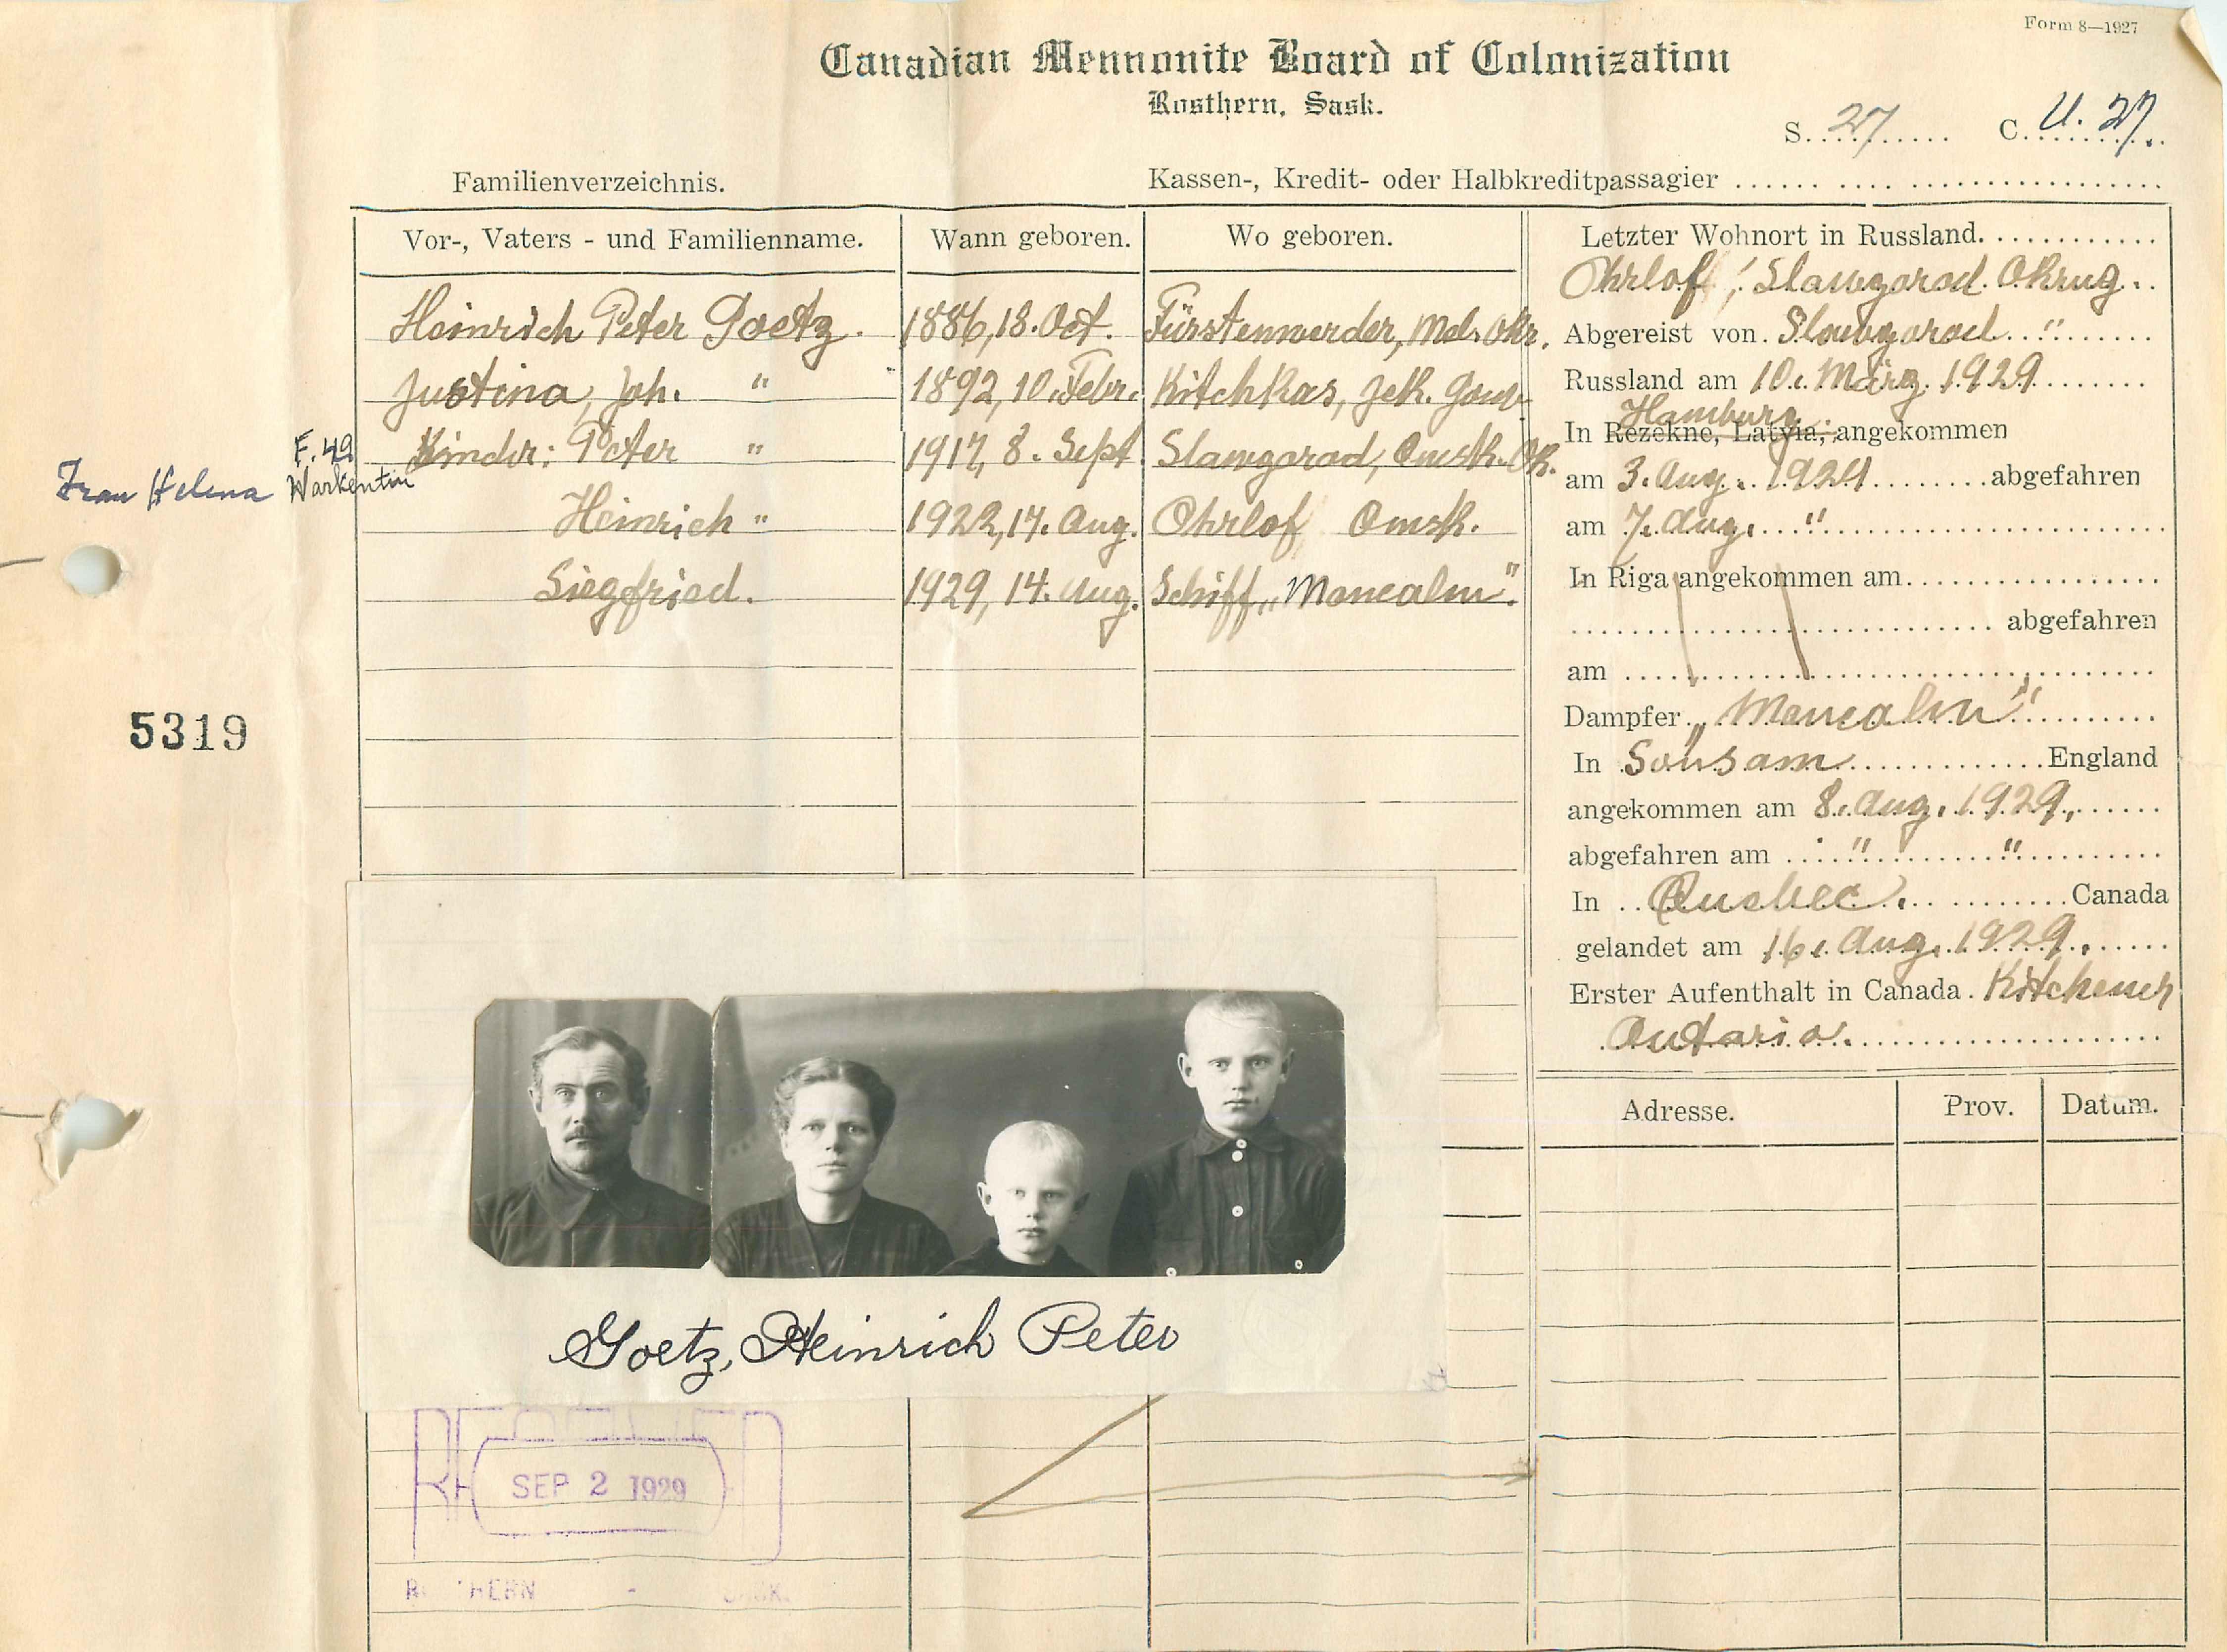 Form 8—1927
Canadian Mennonite Board of Colonization
Rosthern, Sask.
S. 27 C. U. 27.
Familienverzeichnis. Kassen-, Kredit- oder Halbkreditpassagier
Vor-, Vaters - und Familienname. Wann geboren. Wo geboren.
Heinrich Peter Goetz. 1886, 18. Oct. Fürstenwerder, Mel. Okr.
Justina, Joh. " 1892, 10. Febr. Kitchkas, Jek. Gouv
Kinder: Peter " 1917, 8. Sept. Slawgorad, Omsk. Ok.
Heinrich " 1922, 17. Aug. Ohrlof Omsk.
Siegfried. 1929, 14. Aug. Schiff „Moncalm".
F. 49
Frau Helena Warkentin
5319
Letzter Wohnort in Russland.
Ohrlof, Slawgorod Okrug.
Abgereist von Slawgorod "
Russland am 10. März 1929
Hamburg
In Rezekne, Latvia, angekommen
am 3. Aug. 1929 abgefahren
am 7. Aug. "
In Riga angekommen am
abgefahren
am
Dampfer „Moncalm"
In England
angekommen am 8. Aug. 1929.
abgefahren am " "
In Quebec. Canada
gelandet am 16. Aug. 1929.
Erster Aufenthalt in Canada. Kitchener
Ontario.
Adresse. Prov. Datum.
Goetz, Heinrich Peter
RECEIVED
SEP 2 1929
ROSTHERN - SASK.